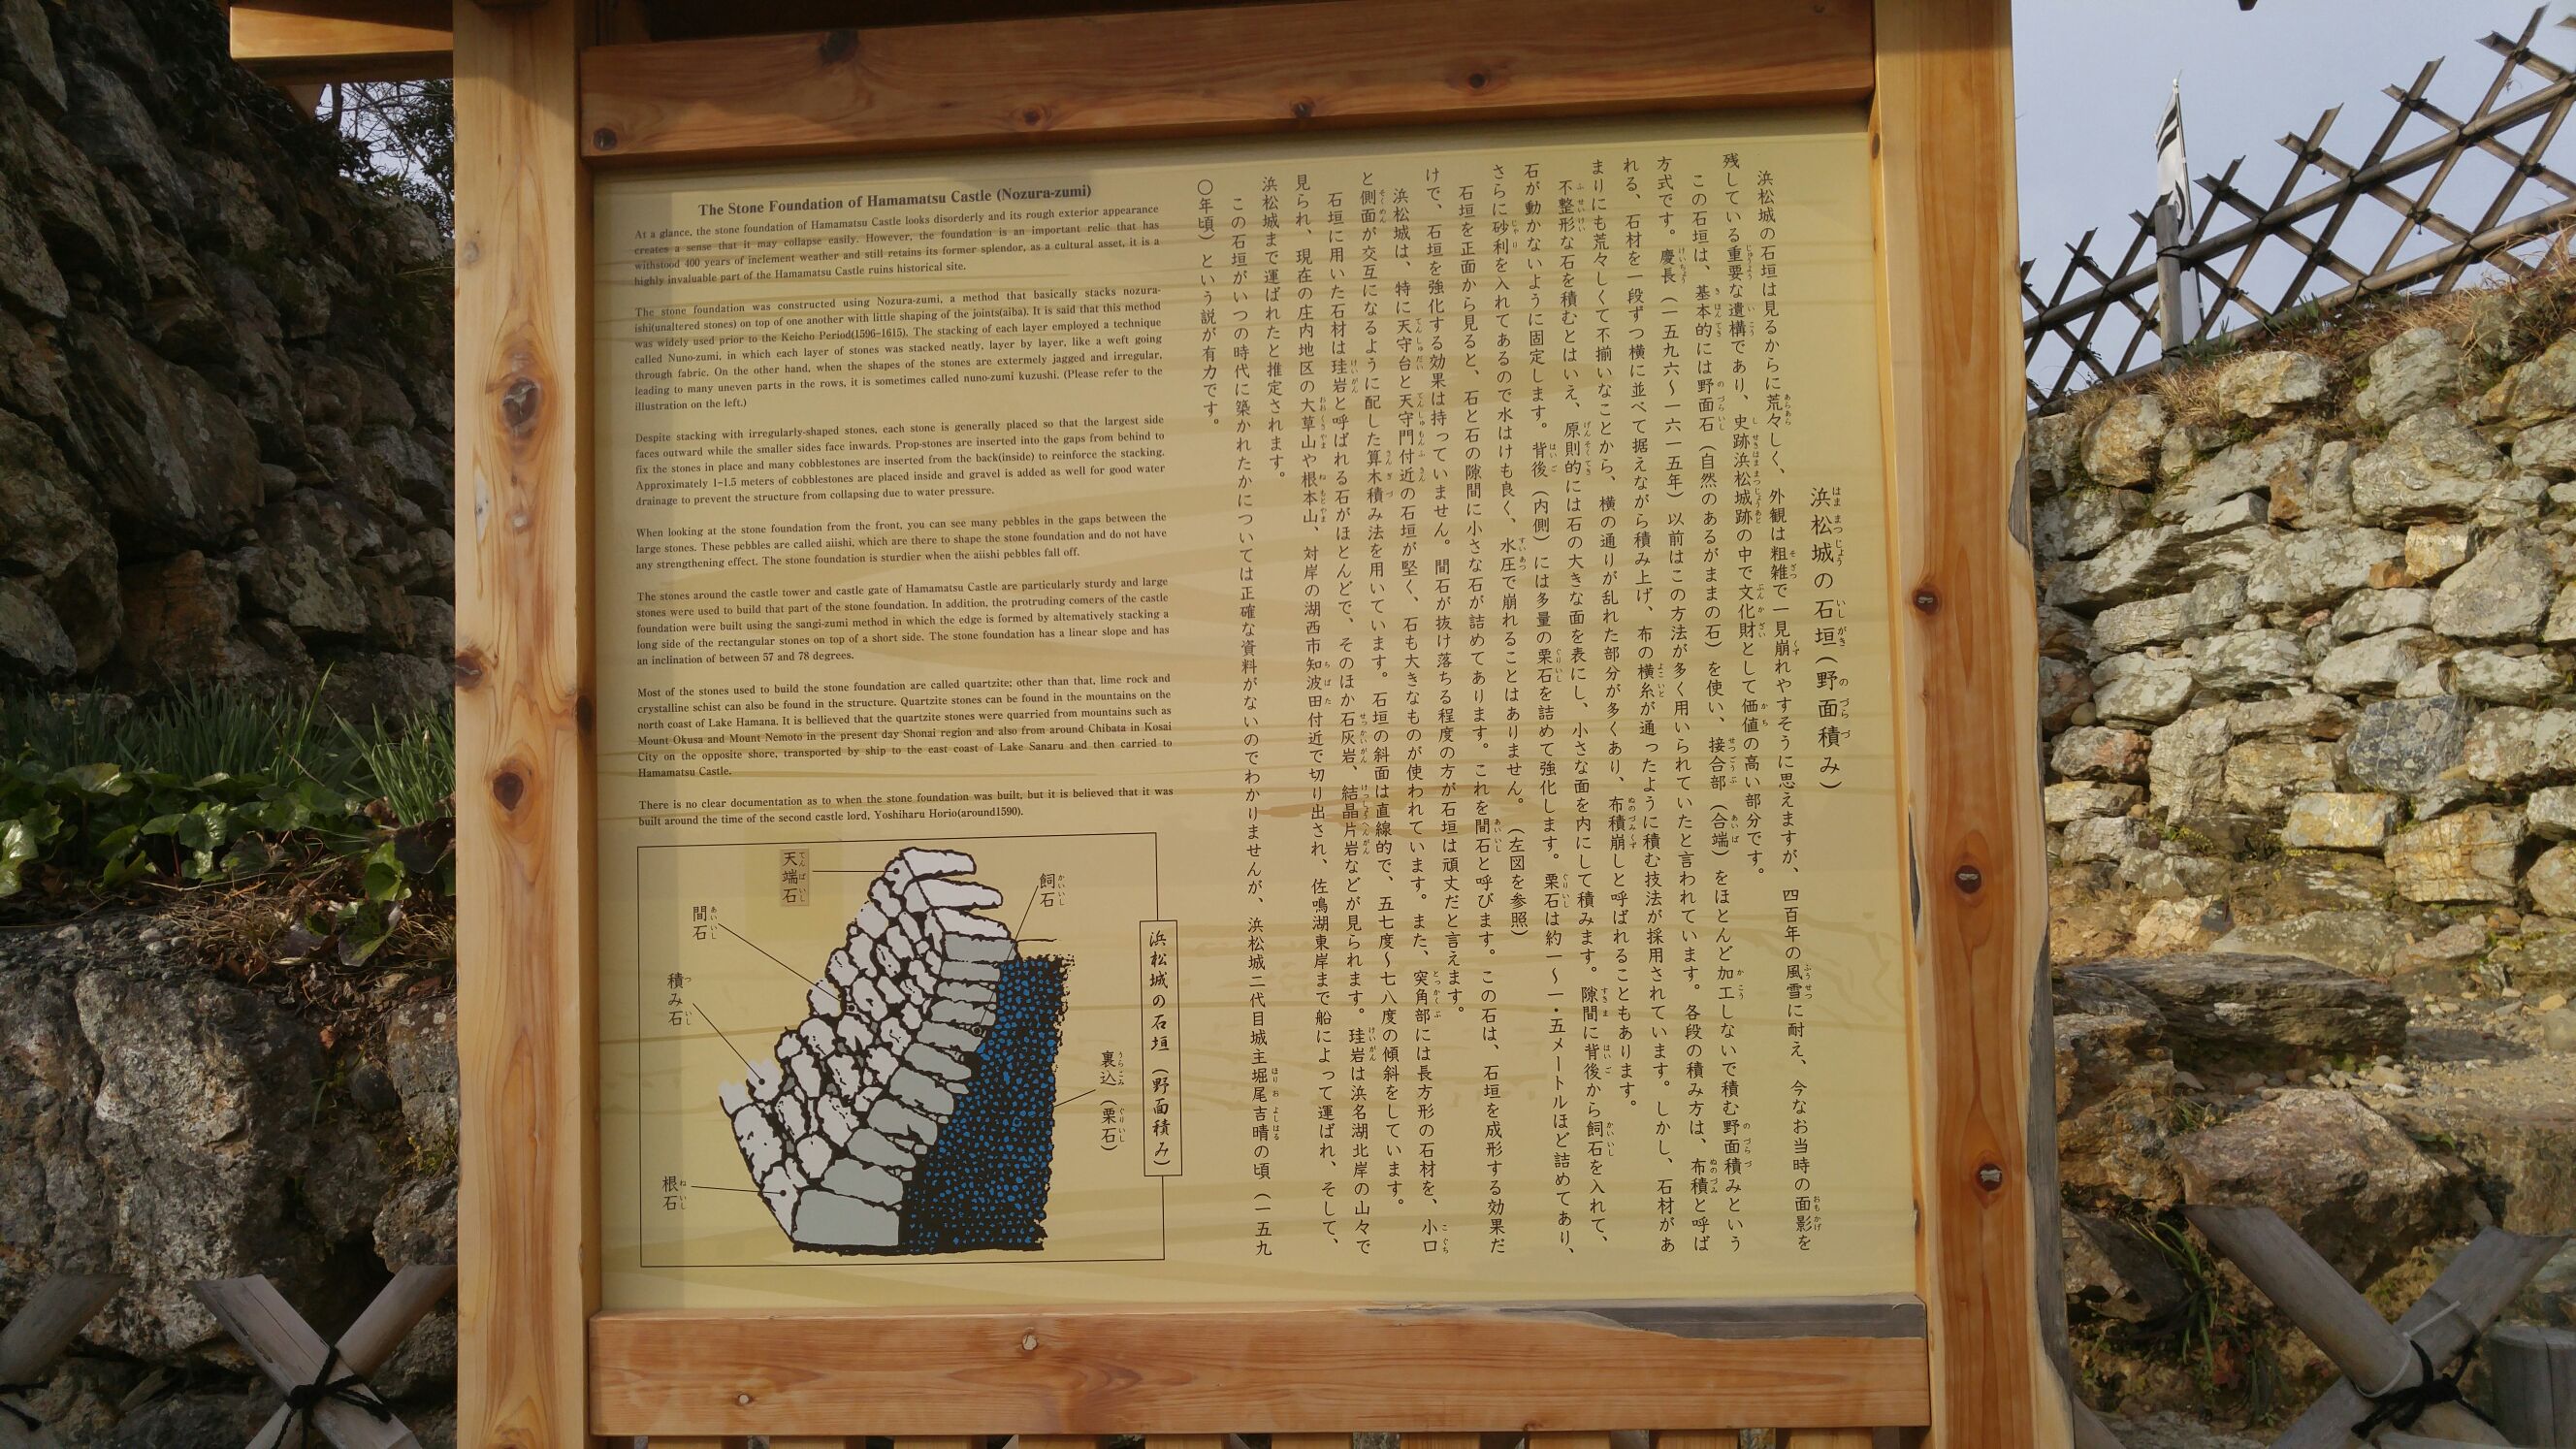 The Stone Foundation of Hamamatsu Castle (Nozura-zumi)
At a glance, the stone foundation of Hamamatsu Castle looks disorderly and its rough exterior appearance
creates a sense that it may collapse easily. However, the foundation is an important relic that has
withstood 400 years of inclement weather and still retains its former splendor, as a cultural asset, it is a
highly invaluable part of the Hamamatsu Castle ruins historical site.
The stone foundation was constructed using Nozura-zumi, a method that basically stacks nozura-
ishi(unaltered stones) on top of one another with little shaping of the joints(aiba). It is said that this method
was widely used prior to the Keicho Period(1596-1615). The stacking of each layer employed a technique
called Nuno-zumi, in which each layer of stones was stacked neatly, layer by layer, like a weft going
through fabric. On the other hand, when the shapes of the stones are extermely jagged and irregular,
leading to many uneven parts in the rows, it is sometimes called nuno-zumi kuzushi. (Please refer to the
illustration on the left.)
Despite stacking with irregularly-shaped stones, each stone is generally placed so that the largest side
faces outward while the smaller sides face inwards. Prop-stones are inserted into the gaps from behind to
fix the stones in place and many cobblestones are inserted from the back(inside) to reinforce the stacking.
Approximately 1-1.5 meters of cobblestones are placed inside and gravel is added as well for good water
drainage to prevent the structure from collapsing due to water pressure.
When looking at the stone foundation from the front, you can see many pebbles in the gaps between the
large stones. These pebbles are called aiishi, which are there to shape the stone foundation and do not have
any strengthening effect. The stone foundation is sturdier when the aiishi pebbles fall off.
The stones around the castle tower and castle gate of Hamamatsu Castle are particularly sturdy and large
stones were used to build that part of the stone foundation. In addition, the protruding comers of the castle
foundation were built using the sangi-zumi method in which the edge is formed by altematively stacking a
long side of the rectangular stones on top of a short side. The stone foundation has a linear slope and has
an inclination of between 57 and 78 degrees.
Most of the stones used to build the stone foundation are called quartzite; other than that, lime rock and
crystalline schist can also be found in the structure. Quartzite stones can be found in the mountains on the
north coast of Lake Hamana. It is bellieved that the quartzite stones were quarried from mountains such as
Mount Okusa and Mount Nemoto in the present day Shonai region and also from around Chibata in Kosai
City on the opposite shore, transported by ship to the east coast of Lake Sanaru and then carried to
Hamamatsu Castle.
There is no clear documentation as to when the stone foundation was built, but it is believed that it was
built around the time of the second castle lord, Yoshiharu Horio(around1590).
浜松城の石垣(野面積み)
浜松城の石垣は見るからに荒々しく、外観は粗雑で一見崩れやすそうに思えますが、四百年の風雪に耐え、今なお当時の面影を
残している重要な遺構であり、史跡浜松城跡の中で文化財として価値の高い部分です。
この石垣は、基本的には野面石(自然のあるがままの石)を使い、接合部(合端)をほとんど加工しないで積む野面積みという
方式です。慶長(一五九六~一六一五年)以前はこの方法が多く用いられていたと言われています。各段の積み方は、布積と呼ば
れる、石材を一段ずつ横に並べて据えながら積み上げ、布の横糸が通ったように積む技法が採用されています。しかし、石材があ
まりにも荒々しくて不揃いなことから、横の通りが乱れた部分が多くあり、布積崩しと呼ばれることもあります。
不整形な石を積むとはいえ、原則的には石の大きな面を表にし、小さな面を内にして積みます。隙間に背後から飼石を入れて、
石が動かないように固定します。背後(内側)には多量の栗石を詰めて強化します。栗石は約一~一・五メートルほど詰めてあり、
さらに砂利を入れてあるので水はけも良く、水圧で崩れることはありません。(左図を参照)
石垣を正面から見ると、石と石の隙間に小さな石が詰めてあります。これを間石と呼びます。この石は、石垣を成形する効果だ
けで、石垣を強化する効果は持っていません。間石が抜け落ちる程度の方が石垣は頑丈だと言えます。
浜松城は、特に天守台と天守門付近の石垣が堅く、石も大きなものが使われています。また、突角部には長方形の石材を、小口
と側面が交互になるように配した算木積み法を用いています。石垣の斜面は直線的で、五七度~七八度の傾斜をしています。
石垣に用いた石材は珪岩と呼ばれる石がほとんどで、そのほか石灰岩、結晶片岩などが見られます。珪岩は浜名湖北岸の山々で
見られ、現在の庄内地区の大草山や根本山、対岸の湖西市知波田付近で切り出され、佐鳴湖東岸まで船によって運ばれ、そして、
浜松城まで運ばれたと推定されます。
この石垣がいつの時代に築かれたかについては正確な資料がないのでわかりませんが、浜松城二代目城主堀尾吉晴の頃(一五九
〇年頃)という説が有力です。
浜松城の石垣(野面積み)
天端石
飼石
間石
積み石
裏込(栗石)
根石